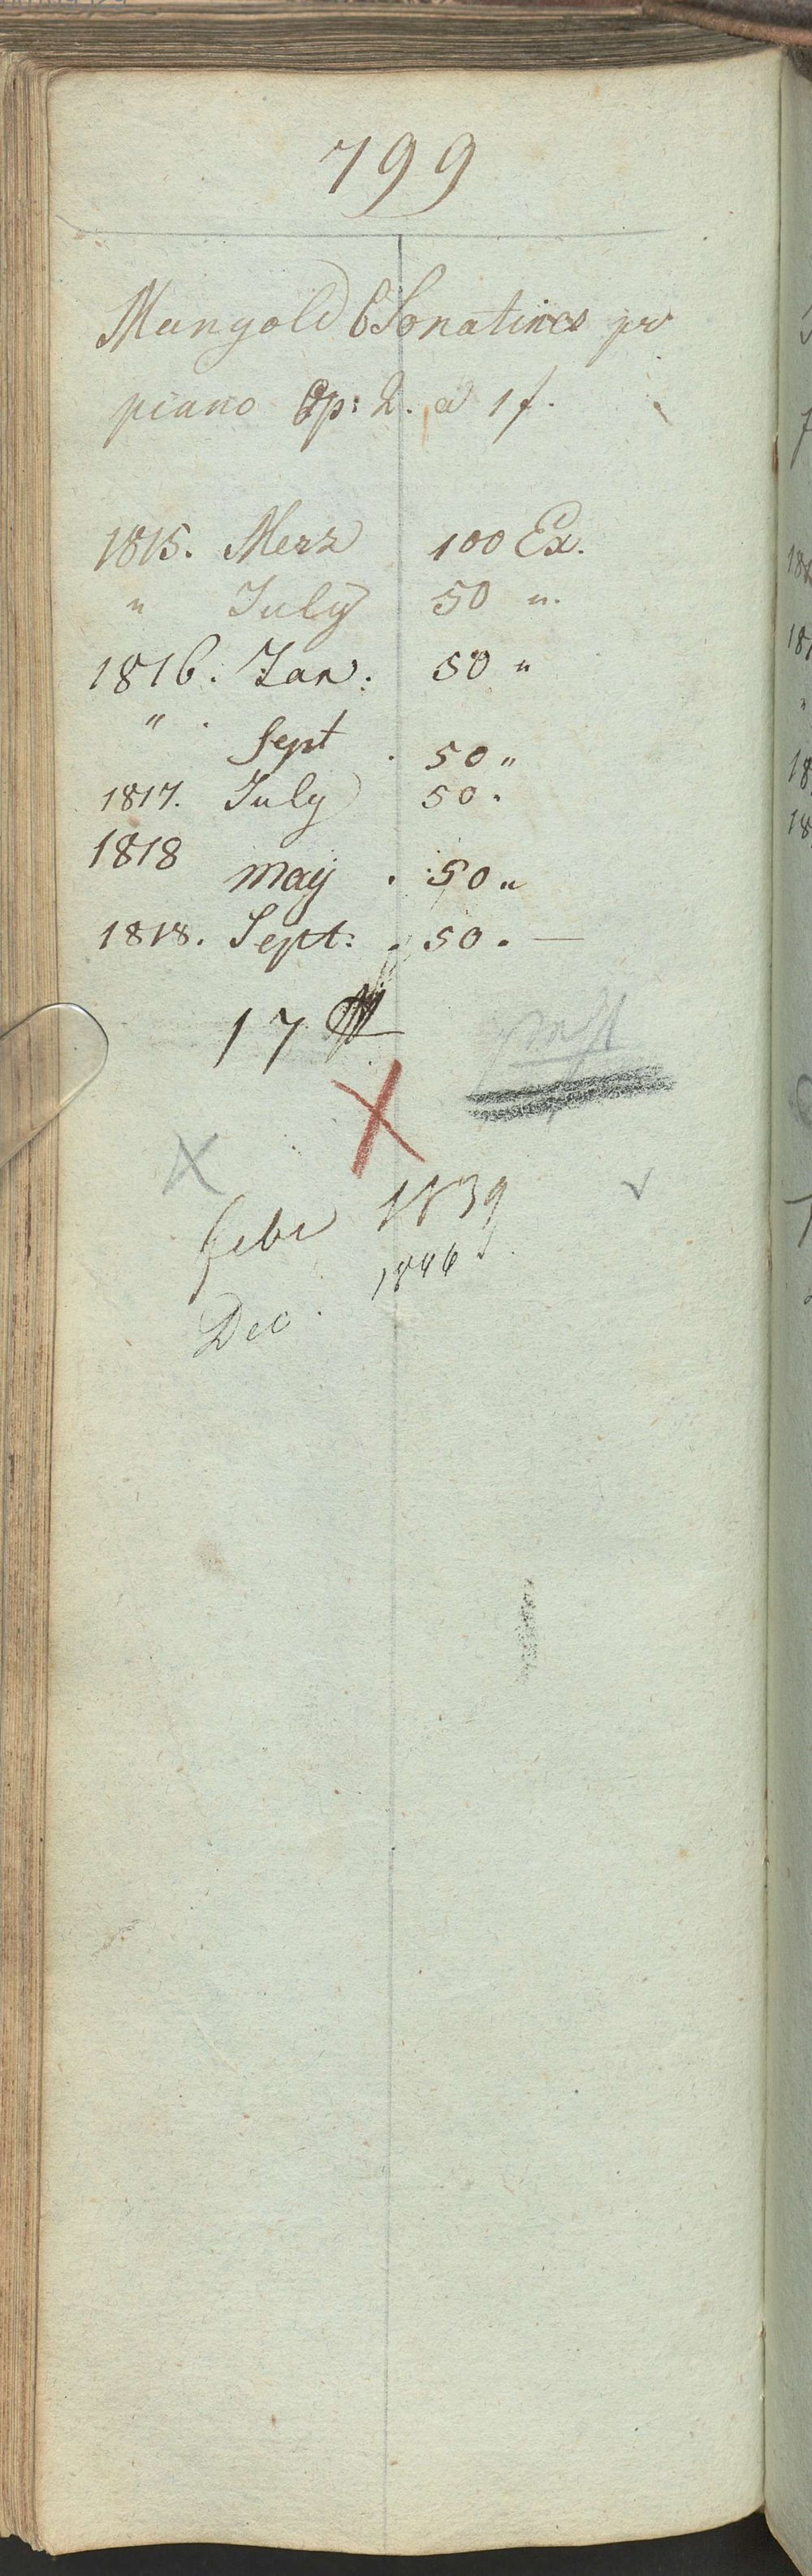 799
Mangold 6 Sonatines pr
piano Op: 2. a 1 f.
1815. Merz 100 Ex.
" July 50 ".
1816. Jan: 50 "
" . Sept . 50 "
1817. July 50 .
1818 may . 50 "
1818. Sept: . 50 . —
17
X
X
febr 1839
Dec . 1846